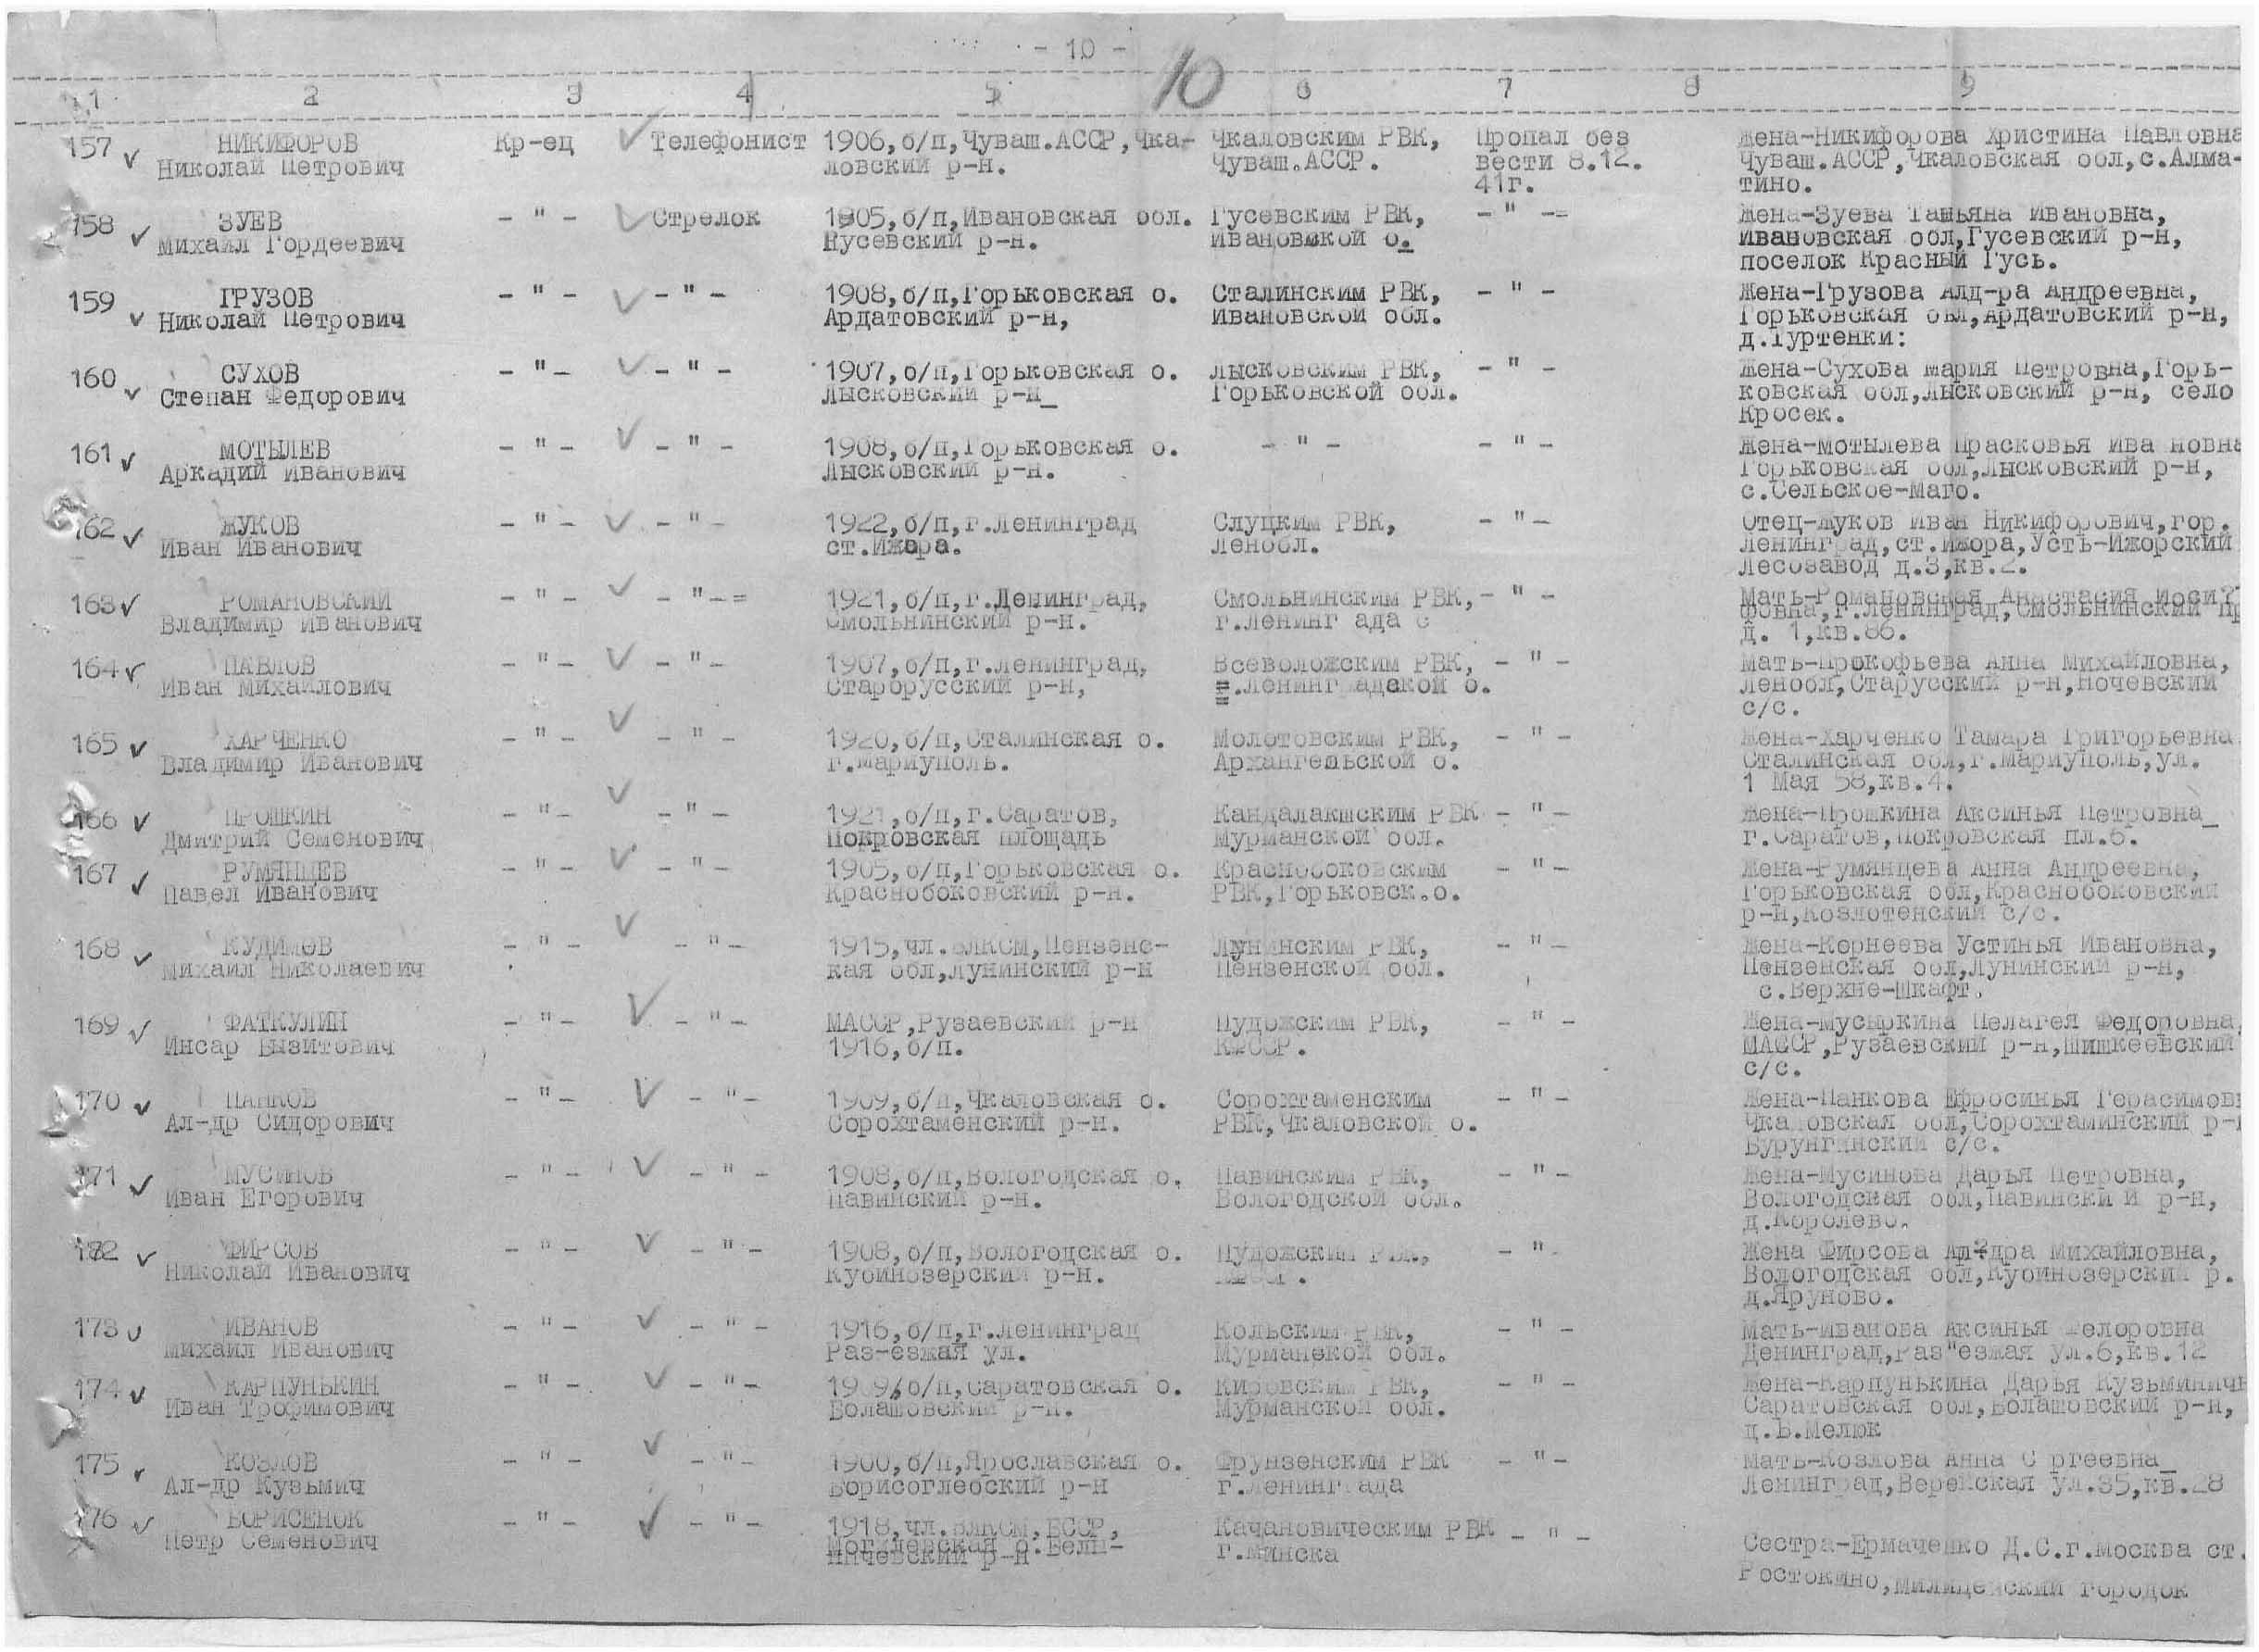 - 10 -
10
1 2 3 4 5 6 7 8 9
157 НИКИФОРОВ Кр-ец Телефонист 1906,б/п,Чуваш.АССР,Чка- Чкаловским РВК, Пропал без Жена-Никифорова Христина Павловна
Николай Петрович ловский р-н. Чуваш.АССР. вести 8.12. Чуваш.АССР,Чкаловская обл,с.Алма-
41г. тино.
158 ЗУЕВ - " - Стрелок 1905,б/п,Ивановская обл. Гусевским РВК, - " -= Жена-Зуева Татьяна Ивановна,
Михаил Гордеевич Нусевский р-н. Ивановской о. Ивановская обл,Гусевский р-н,
поселок Красный Гусь.
159 ГРУЗОВ - " - - " - 1908,б/п,Горьковская о. Сталинским РВК, - " - Жена-Грузова Алд-ра Андреевна,
Николай Петрович Ардатовский р-н, Ивановской обл. Горьковская обл,Ардатовский р-н,
д.Туртенки:
160 СУХОВ - " - - " - 1907,б/п,Горьковская о. Лысковским РВК, - " - Жена-Сухова Мария Петровна,Горь-
Степан Федорович Лысковский р-н_ Горьковской обл. ковская обл,Лысковский р-н, село
Кросек.
161 МОТЫЛЕВ - " - - " - 1908,б/п,Горьковская о. - " - - " - Жена-Мотылева Прасковья Ива новна
Аркадий Иванович Лысковский р-н. Горьковская обл,Лысковский р-н,
с.Сельское-Маго.
162 ЖУКОВ - " - - " - 1922,б/п,г.Ленинград Слуцким РВК, - " - Отец-Жуков Иван Никифорович,гор.
Иван Иванович ст.Ижора. Ленобл. Ленинград,ст.Ижора,Усть-Ижорский
Лесозавод д.3,кв.2.
163 РОМАНОВСКИЙ - " - - " -= 1921,б/п,г.Ленинград, Смольнинским РВК, - " - Мать-Романовская Анастасия Иоси?
Владимир Иванович Смольнинский р-н. г.Ленинг ада с фовна,г.Ленинград,Смольнинский пр
д. 1,кв.86.
164 ПАВЛОВ - " - - " - 1907,б/п,г.Ленинград, Всеволожским РВК, - " - Мать-Прокофьева Анна Михайловна,
Иван Михайлович Старорусский р-н, .Ленинградской о. Ленобл,Старусский р-н,Ночевский
с/с.
165 ХАРЧЕНКО - " - - " - 1920,б/п,Сталинская о. Молотовским РВК, - " - Жена-Харченко Тамара Григорьевна
Владимир Иванович г.Мариуполь. Архангельской о. Сталинская обл,г.Мариуполь,ул.
1 Мая 58,кв.4.
166 ПРОШКИН - " - - " - 1921,б/п,г.Саратов, Кандалакшским РВК - " - Жена-Прошкина Аксинья Петровна_
Дмитрий Семенович Покровская площадь Мурманской обл. г.Саратов,Покровская пл.6.
167 РУМЯНЦЕВ - " - - " - 1905,б/п,Горьковская о. Краснобоковским - " - Жена-Румянцева Анна Андреевна,
Павел Иванович Краснобоковский р-н. РВК,Горьковск.о. Горьковская обл,Краснобоковский
р-н,Козлотенский с/с.
168 КУДИМОВ - " - - " - 1915,чл.ВЛКСМ,Пензенс- Лунинским РВК, - " - Жена-Корнеева Устинья Ивановна,
Михаил Николаевич кая обл,Лунинский р-н Пензенской обл. Пензенская обл,Лунинский р-н,
с.Верхне-Шкафт.
169 ФАТКУЛИН - " - - " - МАССР,Рузаевский р-н Пудожским РВК, - " - Жена-Мусыркина Пелагея Федоровна,
Инсар Вызитович 1916,б/п. КФССР. МАССР,Рузаевский р-н,Шишкеевский
с/с.
170 ПАНКОВ - " - - " - 1909,б/п,Чкаловская о. Сорохтаменским - " - Жена-Панкова Ефросинья Герасимов
Ал-др Сидорович Сорохтаменский р-н. РВК,Чкаловской о. Чкаловская обл,Сорохтаминский р-
Бурунганский с/с.
171 МУСИНОВ - " - - " - 1908,б/п,Вологодская о. Павинским РВК, - " - Жена-Мусинова Дарья Петровна,
Иван Егорович Павинский р-н. Вологодской обл. Вологодская обл,Павински й р-н,
д.Королево.
172 ФИРСОВ - " - - " - 1908,б/п,Вологодская о. Пудожским РВК, - " Жена Фирсова Ал?дра Михайловна,
Николай Иванович Кубинозерский р-н. Вологодская обл,Кубинозерский р.
д.Яруново.
173 ИВАНОВ - " - - " - 1916,б/п,г.Ленинград Кольским РВК, - " - Мать-Иванова Аксинья Федоровна
Михаил Иванович Раз-езжая ул. Мурманской обл. Ленинград,Раз"езжая ул.6,кв.12
174 КАРПУНЬКИН - " - - " - б/п,Саратовская о. Кировским РВК, - " - Жена-Карпунькина Дарья Кузьминичн
Иван Трофимович Болашовский р-н. Мурманской обл. Саратовская обл,Болашовский р-н,
д.Б.Мелюк
175 КОЗЛОВ - " - - " - 1900,б/п,Ярославская о. Фрунзенским РВК - " - Мать-Козлова Анна С ргеевна_
Ал-др Кузьмич Борисоглебский р-н г.Ленинграда Ленинград,Верейская ул.35,кв.28
176 БОРИСЕНОК - " - - " - 1918,чл.ВЛКСМ,БССР, Качановическим РВК - " -
Петр Семенович Могилевская о.Белы- г.Минска Сестра-Ермаченко Д.С.г.Москва ст.
ничевский р-н Ростокино,Милицейский городок